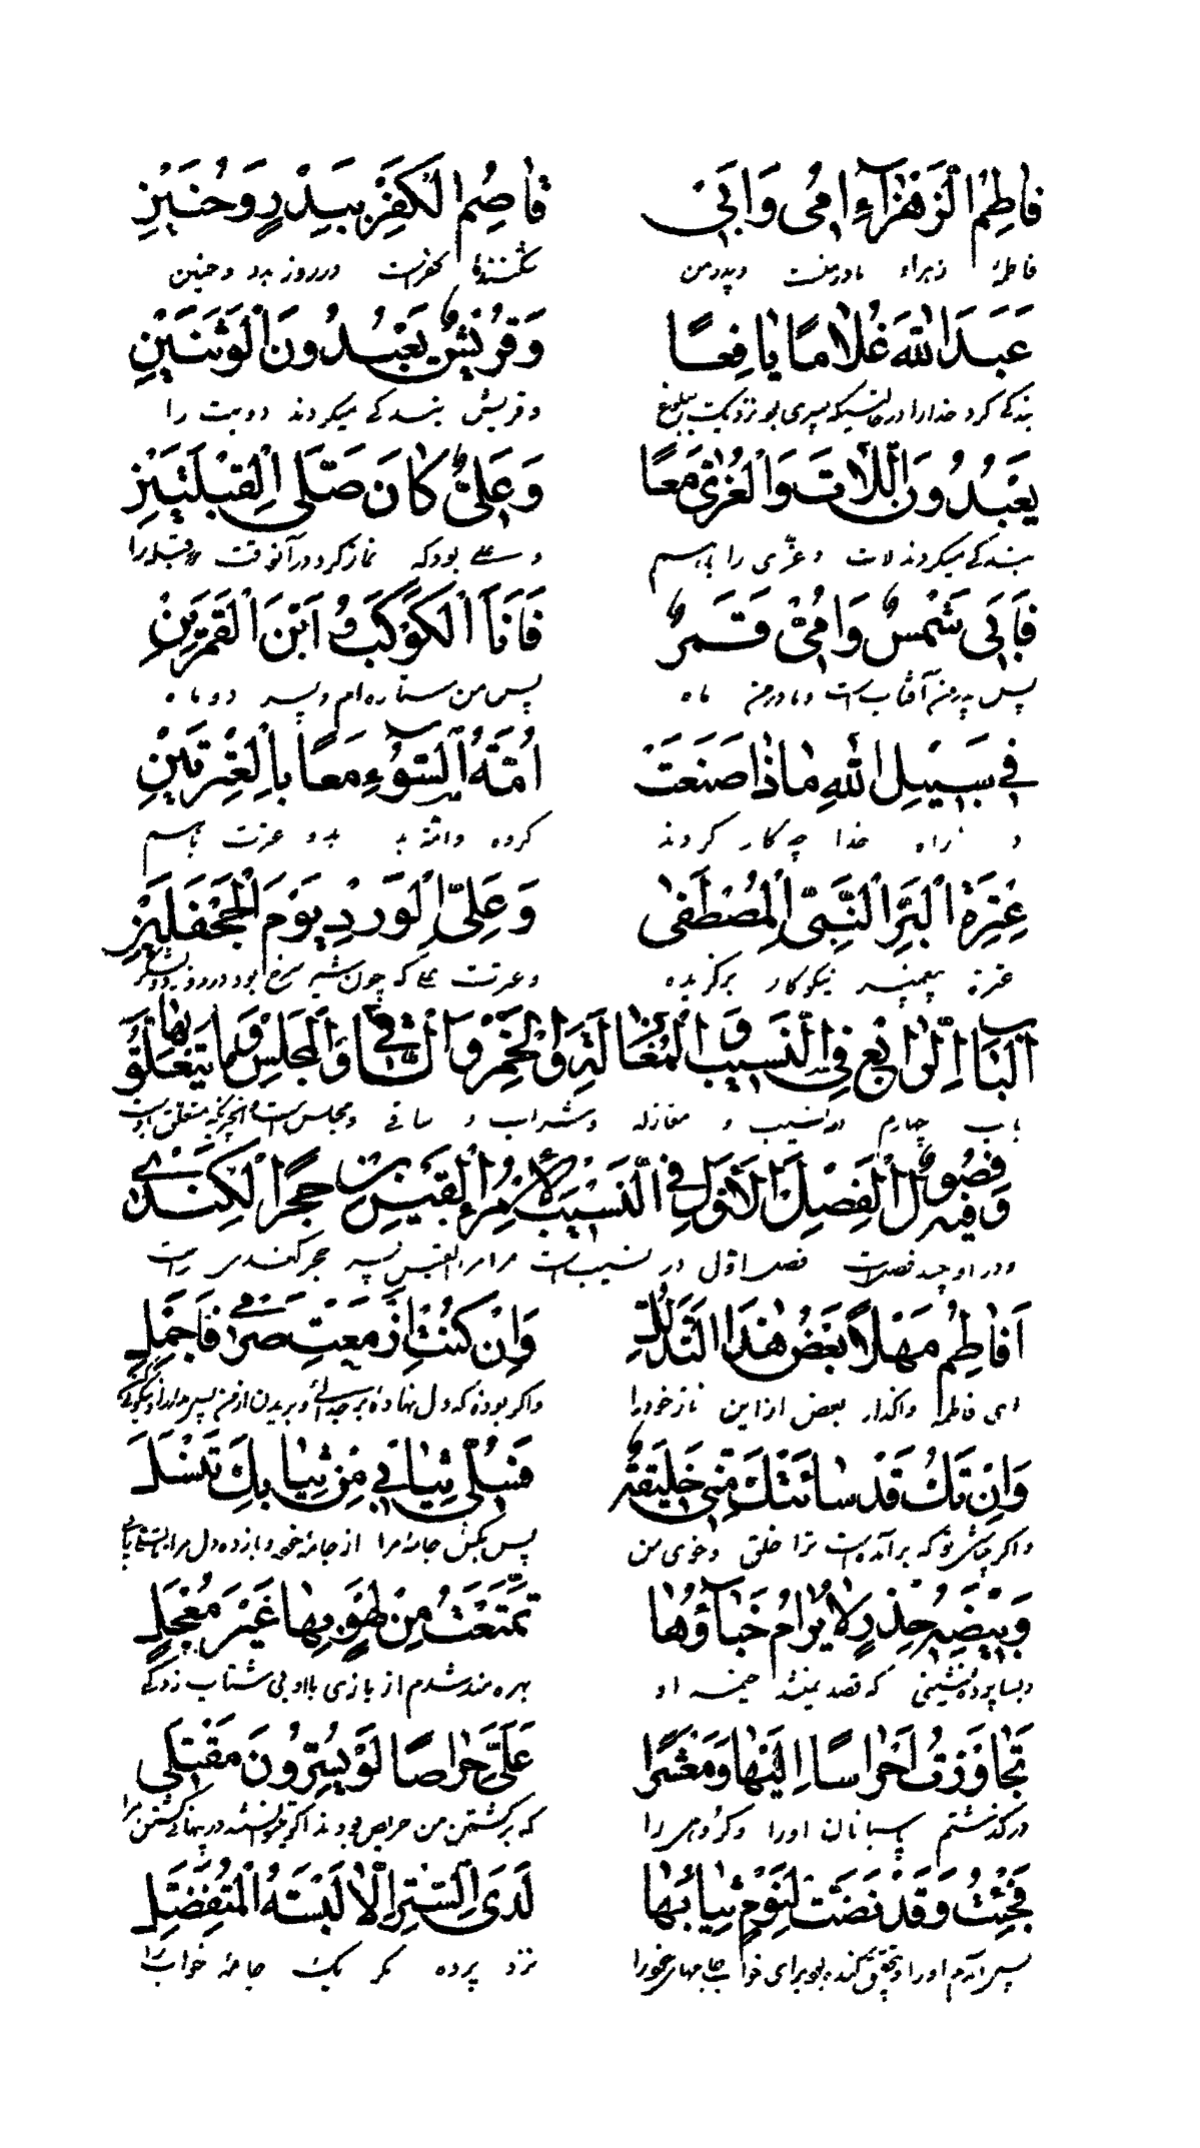 فَاطِمُ الزَّهْرَاءِ اُمّی وَاَبی قَاصِمُ الْکُفْرِ بِبَدْرٍ وَحُنَیْنِ
فاطمهٔ زهراء مادر منست و پدر من شکنندهٔ کفر است در روز بدر و حنین
عَبَدَ اللّٰهَ غُلَامًا یَافِعًا وَقُرَیْشٌ یَعْبُدُونَ الْوَثَنَیْنِ
بندگی کرد خدا را در حالتیکه پسری بود نزدیک ببلوغ و قریش بندگی میکردند دو بت را
یَعْبُدُونَ اللَّاتَ وَالْعُزّٰی مَعًا وَعَلِیٌّ کَانَ صَلَّی الْقِبْلَتَیْنِ
بندگی میکردند لات و عزّی را باهم و علی بود که نماز کرد در آنوقت دو قبله را
فَاَبی شَمْسٌ وَاُمّی قَمَرٌ فَاَنَا الْکَوْکَبُ وَابْنُ الْقَمَرَیْنِ
پس پدر من آفتاب است و مادر من ماه پس من ستاره ام و پسر دو ماه
فی سَبیلِ اللّٰهِ مَاذَا صَنَعَتْ اُمَّةُ السَّوْءِ مَعًا بِالْعِتْرَتَیْنِ
در راه خدا چه کار کردند کرده و امّت بد بدو عترت باهم
عِتْرَةِ الْبَرِّ النَّبِیِّ الْمُصْطَفٰی وَعَلِیِّ الْوَرْدِ یَوْمَ الْجَحْفَلَیْنِ
عترت پیمبر نیکوکار برگزیده و عترت علی که چون شیر سرخ بود در روز دو لشکر
اَلْبَابُ الرَّابِعُ فِی النَّسیبِ وَالْمُغَازَلَةِ وَالْخَمْرِ وَالسَّاقی وَالْمَجْلِسِ وَمَا یَتَعَلَّقُ بِهَا
باب چهارم در نسیب و مغازله و شراب و ساقی و مجلس است و آنچه متعلق بآنست
وَفیهِ فُصُولٌ الْفَصْلُ الْاَوَّلُ فِی النَّسیبِ لِامْرُءِ الْقَیْسِ بْنِ حُجْرٍ الْکِنْدی
و در او چند فصلست فصل اوّل در نسیب است مر امرء القیس پسر حجر کندی راست
اَفَاطِمُ مَهْلًا بَعْضَ هٰذَا التَّدَلُّلِ وَاِنْ کُنْتِ اَزْمَعْتِ صَرْمی فَاَجْمِلی
ای فاطمه واگذار بعض از این ناز خود را و اگر بودهٔ که دل نهادهٔ بر جدائی و بریدن از من پس مدارا و نیکوئی کن
وَاِنْ تَکُ قَدْ سَائَتْکَ مِنّی خَلیقَةٌ فَسُلّی ثِیَابی مِنْ ثِیَابِکِ تَنْسَلِ
و اگر چنانچه تو که بد آمده است ترا خلق و خوی من پس بکش جامهٔ مرا از جامهٔ خود
وَبَیْضَةِ خِدْرٍ لَا یُرَامُ خِبَاؤُهَا تَمَتَّعْتُ مِنْ لَهْوٍ بِهَا غَیْرَ مُعْجَلِ
و بسا پرده نشینی که قصد نمیشد خیمه او بهره مند شدم از بازی با او بی شتاب زدگی
تَجَاوَزْتُ اَحْرَاسًا اِلَیْهَا وَمَعْشَرًا عَلَیَّ حِرَاصًا لَوْ یُسِرُّونَ مَقْتَلی
در گذشتم پاسبانان او را و گروهی را که بر کشتن من حریص بودند اگر میتوانستند در پنهانی کشتن مرا
فَجِئْتُ وَقَدْ نَضَتْ لِنَوْمٍ ثِیَابَهَا لَدَی السِّتْرِ اِلَّا لِبْسَةَ الْمُتَفَضِّلِ
پس آمدم او را و بتحقیق کنده بود برای خواب جامهای خود را نزد پرده مگر یک جامهٔ خواب را